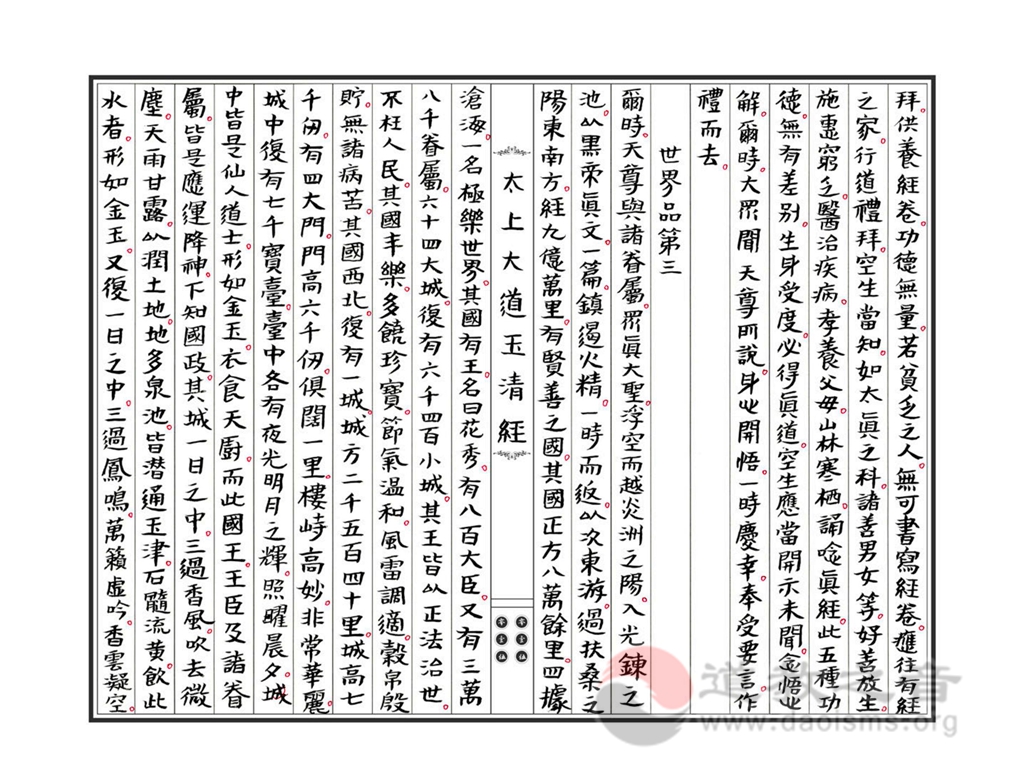 拜。供養經卷。功德無量。若貧乏之人。無可書寫經卷。應往有經
之家。行道禮拜。空生當知。如太眞之科。諸善男女等。好善放生。
施惠窮乏。醫治疾病。孝養父母。山林寒栖。誦唸眞經。此五種功
德。無有差别。生身受度。必得眞道。空生應當開示未聞。令悟也
解。爾時。大眾聞 天尊所說。身心開悟。一時慶幸。奉受要言。作
禮而去。
世界品第三
爾時。天尊與諸眷屬。眾眞大聖。浮空而越炎洲之陽。入光鍊之
池。以黑帝眞文一篇。鎮遏火精。一時而返。以次東游。過扶桑之
陽東南方。經九億萬里。有賢善之國。其國正方八萬餘里。四據
太上大道玉清經
滄海。一名極樂世界。其國有王。名曰花秀。有八百大臣。又有三萬
八千眷屬。六十四大城。復有六千四百小城。其王皆以正法治世。
不枉人民。其國丰樂。多饒珍寶。節氣温和。風雷調適。穀帛殷
貯。無諸病苦。其國西北。復有一城。城方二千五百四十里。城高七
千仞。有四大門。門高六千仞。俱闊一里。樓峙高妙。非常華麗。
城中復有七千寶臺。臺中各有夜光明月之輝。照曜晨夕。城
中皆是仙人道士。形如金玉。衣食天廚。而此國王。王臣及諸眷
屬。皆是應運降神。下知國政。其城一日之中。三過香風。吹去微
塵。天雨甘露。以潤土地。地多泉池。皆潜通玉津。石髓流黄。飲此
水者。形如金玉。又復一日之中。三過鳳鳴。萬籟虛吟。香雲凝空。
道教之音
www.daoisms.org